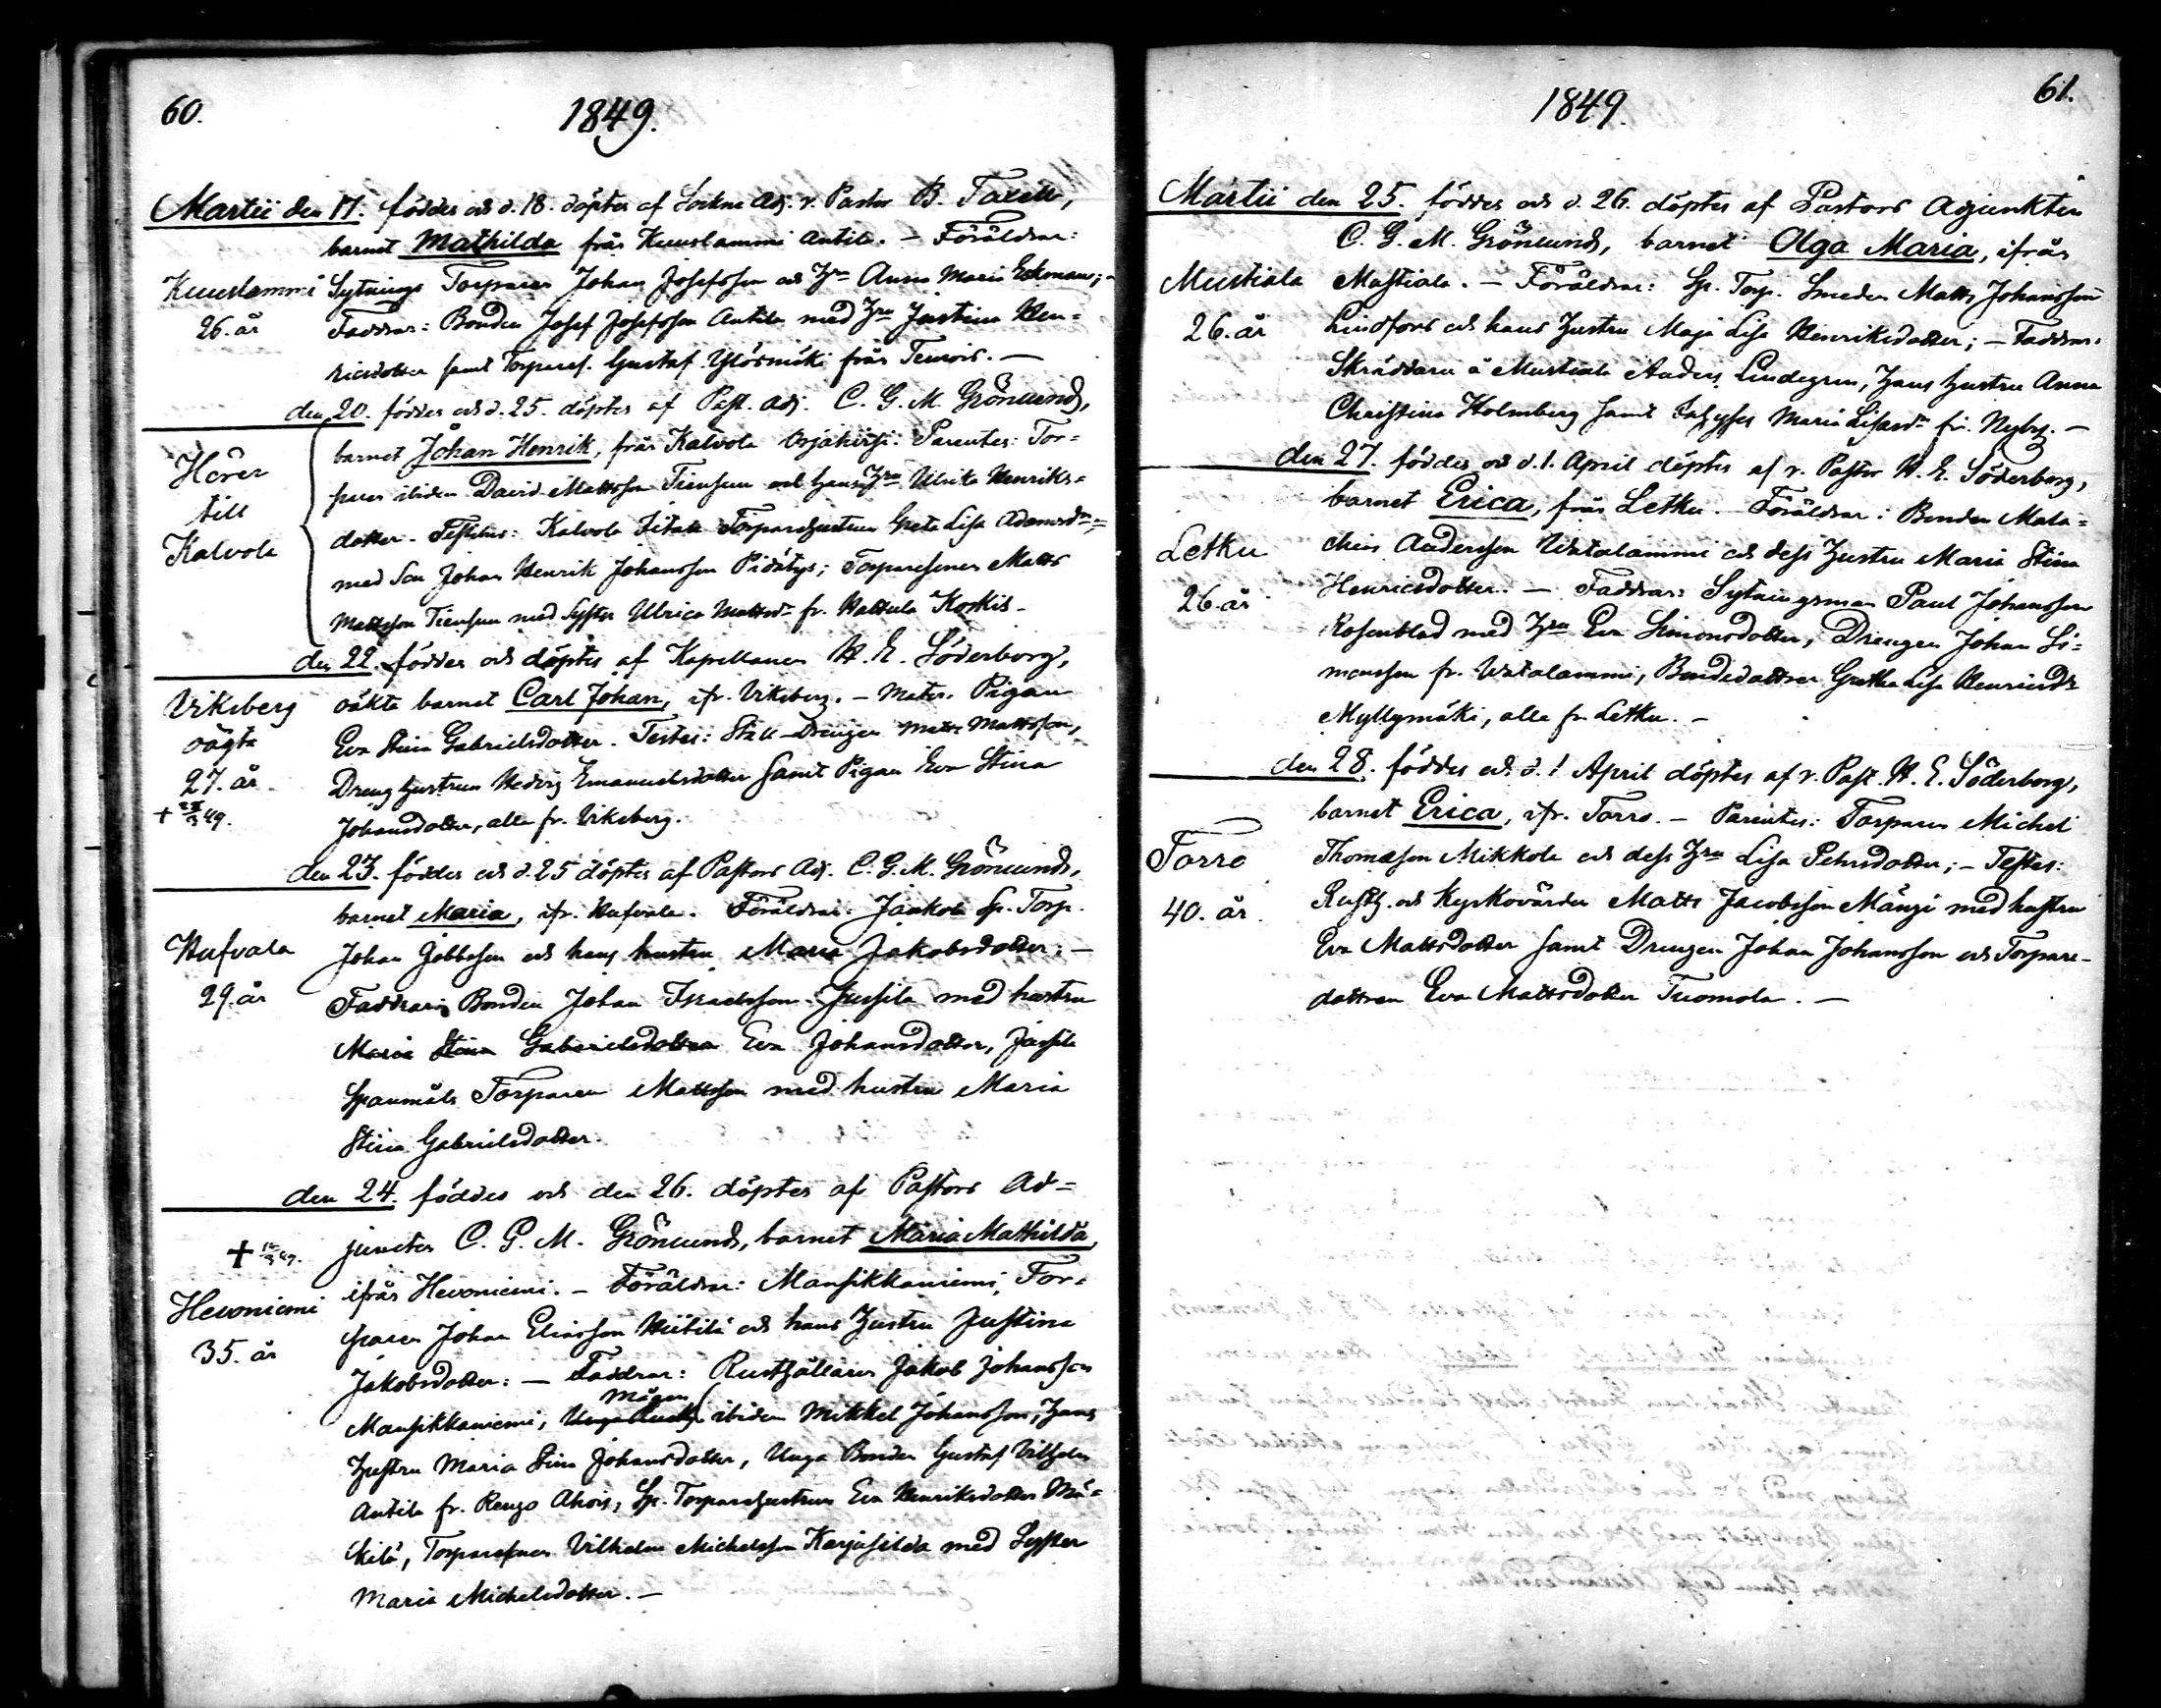 60.
1849.
Martii den 17. föddes och d. 18. döptes af Sockne Adj. v. Pastor B. Taxell,
barnet Mathilda från Kuuslammi Antila. - Föräldrar:
Kuuslammi
26. år
Sytnings Torparen Johan Josefsson och Hru Anna Maria Ekman; -
Faddrar: Bonden Josef Josefsson Antila med Hru Justina Hen=
ricsdotter samt Torparef. Gustaf Ylösmäki från Teuro. -
den 20. föddes och d. 25. döptes af Past. Adj. C. G. M. Grönlund,
Hörer
till
Kalvola
barnet Johan Henrik, från Kalvola : Parentes: Tor=
paren ibidem David Mattsson Tiensuu och hans Hru Ulrika Henriks=
dotter. Testibus: Kalvola Torparehustrun Greta Lisa Adamsdr
med Son Johan Henrik Johansson ; Torparesonen Matts
Mattsson Tiensuu med Syster Ulrica Mattsdr fr. Hattula
den 22. föddes och döptes af Kapellanen H. E. Söderborg,
Viksberg
oägta
27. år
+ 49.
oäkta barnet Carl Johan, ifr. Viksberg. - Mater. Pigan
Eva Stina Gabrielsdotter. Testes: Stall-Drengen Matts Mattsson,
Dreng hustrun Hedvig Emanuelsdotter samt Pigan Eva Stina
Johansdotter, alla fr. Viksberg.
den 23. föddes och d. 25 döptes af Pastors Adj. C. G. M. Grönlund,
Hufvala
29. år
barnet Maria, ifr. Hufvala. Föräldrar. Jaakola Sp. Torp.
Johan Jobbsson och hans hustru Maria Jakobsdotter; -
Faddrar: Bonden Johan Israelsson Jussila med hustru
Maria Stina Gabrielsdotter Eva Johansdotter, Jussila
Spanmåls Torparen Mattsson med hustru Maria
Stina Gabrielsdotter.
den 24. föddes och den 26. döptes af Pastors Ad=
+ 49.
Hevoniemi
35. år
juncten C. G. M. Grönlund, barnet Maria Mathilda,
ifrån Hevoniemi. - Föräldrar: Mansikkaniemi, Tor=
paren Johan Eliasson Hiitilä och hans Hustru Justina
Jakobsdotter: - Faddrar: Rusthållaren Jakob Johansson
Mågen
Mansikkaniemi, ibidem Mikkel Johansson, Hans
Hustru Maria Stina Johansdotter, Unga Bonden Gustaf Vilhelm
Antila fr. Rengo Ahois, Sp. Torparehustrun Eva Henriksdotter Mä=
kilä, Torparesonen Vilhelm Michelsson Karjasilda med Syster
Maria Michelsdotter. -
61.
1849
Martii den 25. föddes och d. 26. döptes af Pastors Adjunkten
C. G. M. Grönlund, barnet Olga Maria, ifrån
Mustiala
26. år
Mustiala. - Föräldrar: Sp. Torp. Smeden Matts Johansson
Lindfors och hans Hustru Maja Lisa Henriksdotter; - Faddrar:
Skräddaren å Mustiala Anders Lindegren, Hans Hustru Anna
Christina Holmberg samt Maria Lisasdr fr. Nyby. -
den 27. föddes och d. 1. April döptes af v. Pastor H. E. Söderborg,
Letku
26. år
barnet Erica, från Letku. Föräldrar: Bonden Mala=
chias Andersson Watalammi och dess Hustru Maria Stina
Henricsdotter. - Faddrar: Sytningsman Paul Johansson
Rosenblad med Hru Eva Simonsdotter, Drengen Johan Si=
monsson fr. Watalammi, Bondedottren Gretha Lisa Henricsdr
Myllymäki, alla fr. Letku. -
den 28. föddes och d. 1 April döptes af v. Past. H. E. Söderborg,
Torro
40. år.
barnet Erica, ifr. Torro. - Parentes: Torparen Michel
Thomasson Mikkola och dess Hru Lisa Pehrsdotter; - Testes:
Rusth. och Kyrkovärden Matts Jacobsson Mängi med hustru
Eva Mattsdotter samt Drengen Johan Johansson och Torpare-
dottren Eva Mattsdotter Tuomola. -